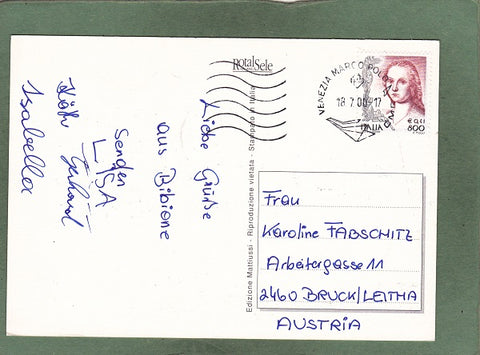 Liebe Grüße
aus Bibione
senden
LISA
Gerhard
Isabella
RotalSele
Edizione Mattiussi - Riproduzione vietata - Stampato in Italia
VENEZIA MARCO POLO
18.7.00-17
ITALIA
€ 0,41
800
Frau
Karoline FABSCHITZ
Arbeitergasse 11
2460 BRUCK/LEITHA
AUSTRIA